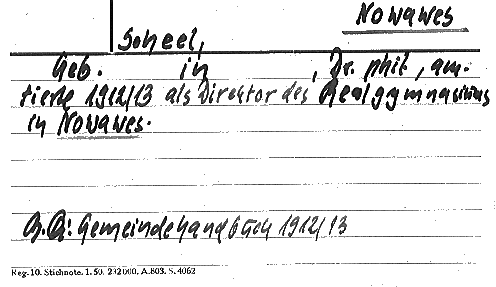 Nowawes
Scheel,
Geb. in , Dr. phil., am-
tierte 1912/13 als Direktor des Realgymnasiums
in Nowawes.
A.Q: Gemeindehandbuch 1912/13
Reg. 10. Stichnote. 1. 50. 232000. A.803. S. 4062